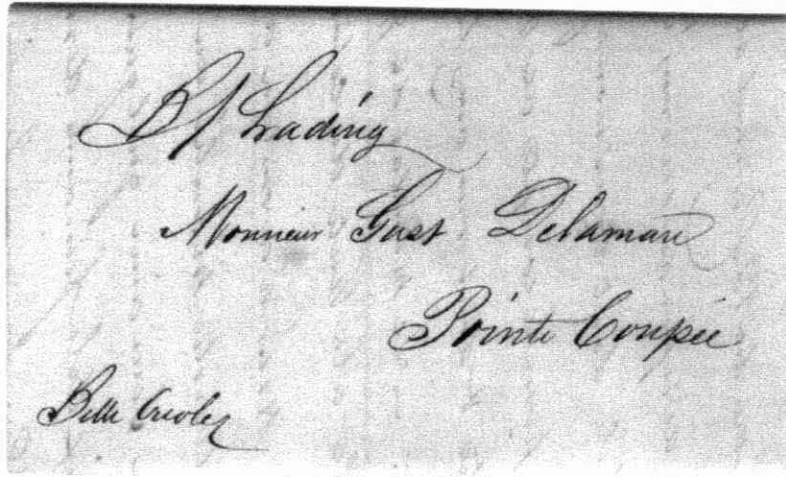 B/ Lading
Monsieur Gust. Delamare
Pointe Coupée
Belle Creole